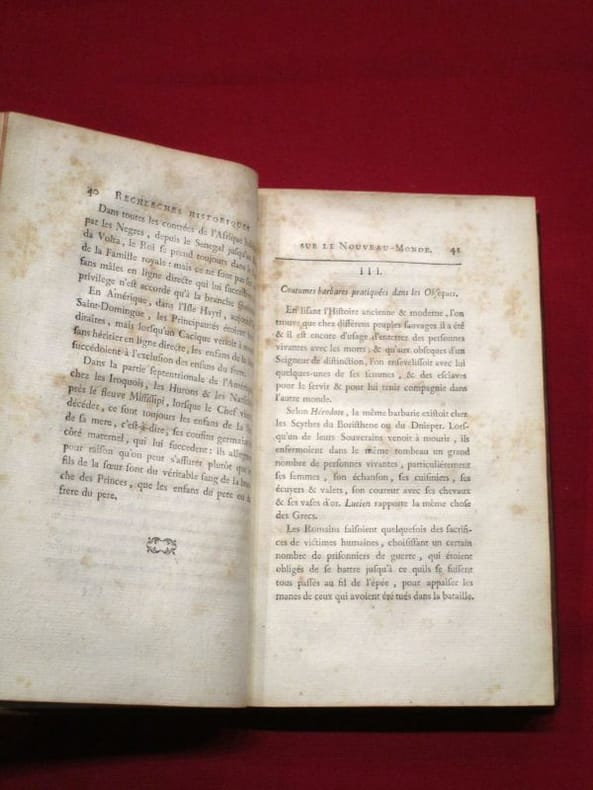 40 RECHERCHES HISTORIQUES
Dans toutes les contrées de l'Afrique
par les Negres, depuis le Senegal jusqu'au
da Volta, le Roi se prend toujours dans la
de la Famille royale: mais ce ne sont pas
sans mâles en ligne directe qui lui succedent
privilege n'est accordé qu'à la branche
En Amérique, dans l'Isle Hayti, aujourd'hui
Saint-Domingue, les Principautés étoient
ditaires, mais lorsqu'un Cacique venoit à
sans héritier en ligne directe, les enfans de sa
succédoient à l'exclusion des enfans du frere.
Dans la partie septentrionale de l'Amérique
chez les Iroquois, les Hurons & les
près le fleuve Missisipi, lorsque le Chef vient
décéder, ce sont toujours les enfans de la
de sa mere, c'est-à-dire, ses cousins germains
côté maternel, qui lui succedent: ils
pour raison qu'on peut s'assurer plutôt que
fils de la sœur sont du véritable sang de la
che des Princes, que les enfans du pere ou du
frere du pere.
SUR LE NOUVEAU-MONDE. 41
III.
Coutumes barbares pratiquées dans les Obseques.
En lisant l'Histoire ancienne & moderne, l'on
trouve que chez différens peuples sauvages il a été
& il est encore d'usage d'enterrer des personnes
vivantes avec les morts; & qu'aux obseques d'un
Seigneur de distinction, l'on ensevelissoit avec lui
quelques-unes de ses femmes, & des esclaves
pour le servir & pour lui tenir compagnie dans
l'autre monde.
Selon Hérodote, la même barbarie existoit chez
les Scythes du Boristhene ou du Dnieper. Lors-
qu'un de leurs Souverains venoit à mourir, ils
enfermoient dans le même tombeau un grand
nombre de personnes vivantes, particuliérement
ses femmes, son échanson, ses cuisiniers, ses
écuyers & valets, son coureur avec ses chevaux
& ses vases d'or. Lucien rapporte la même chose
des Grecs.
Les Romains faisoient quelquefois des sacrifi-
ces de victimes humaines, choisissant un certain
nombre de prisonniers de guerre, qui étoient
obligés de se battre jusqu'à ce qu'ils se fussent
tous passés au fil de l'épée, pour appaiser les
manes de ceux qui avoient été tués dans la bataille.